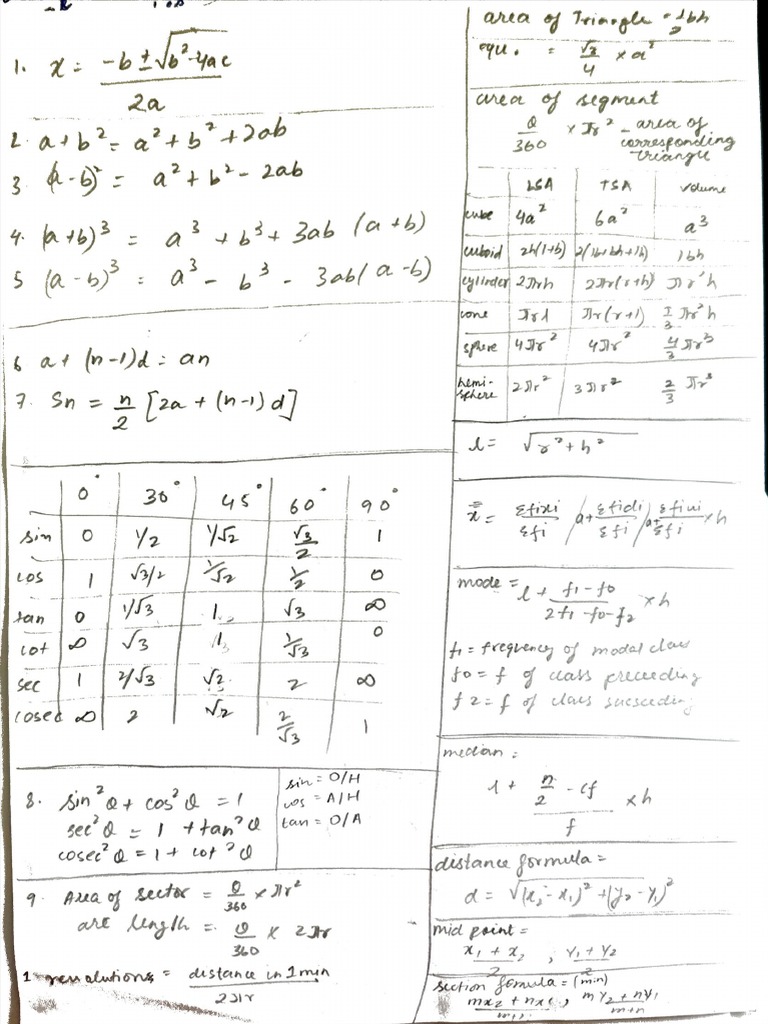 1. x = -b ± √b² - 4ac
2a
2. a + b² = a² + b² + 2ab
3. (a - b)² = a² + b² - 2ab
4. (a+b)³ = a³ + b³ + 3ab (a + b)
5 (a - b)³ = a³ - b³ - 3ab( a - b)
6 a + (n-1)d = an
7. Sn = n/2 [2a + (n-1) d]
0° 30° 45° 60° 90°
sin 0 1/2 1/√2 √3/2 1
cos 1 √3/2 1/√2 1/2 0
tan 0 1/√3 1 √3 ∞
cot ∞ √3 1 1/√3 0
sec 1 2/√3 √2 2 ∞
cosec ∞ 2 √2 2/√3 1
8. sin²θ + cos²θ = 1
sec²θ = 1 + tan²θ
cosec²θ = 1 + cot²θ
sin = O/H
cos = A/H
tan = O/A
9. Area of sector = θ/360 × πr²
arc length = θ/360 × 2πr
revolutions = distance in 1 min
2πr
area of Triangle = 1/2 bh
equ. = √3/4 × a²
area of segment
θ/360 × πr² - area of
corresponding
triangle
LSA TSA volume
cube 4a² 6a² a³
cuboid 2h(l+b) 2(lb+bh+lh) lbh
cylinder 2πrh 2πr(r+h) πr²h
cone πrl πr(r+l) 1/3 πr²h
sphere 4πr² 4πr² 4/3 πr³
hemi-
sphere 2πr² 3πr² 2/3 πr³
l = √r² + h²
x̄ = Σfixi/Σfi / a+ Σfidi/Σfi / a+ Σfiui/Σfi × h
mode = l + f1 - f0 / 2f1 - f0 - f2 × h
f1 = frequency of modal class
f0 = f of class preceeding
f2 = f of class succeeding
median :
l + n/2 - cf / f × h
distance formula =
d = √(x2 - x1)² + (y2 - y1)²
mid point =
x1 + x2 / 2 , y1 + y2 / 2
section formula = (m:n)
mx2 + nx1 / m+n , my2 + ny1 / m+n